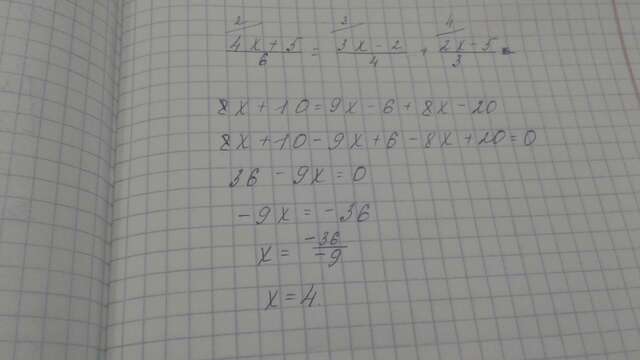 2 3 4
4x+5/6 = 3x-2/4 + 2x-5/3
8x+10=9x-6+8x-20
8x+10-9x+6-8x+20=0
36-9x=0
-9x=-36
x=-36/-9
x=4